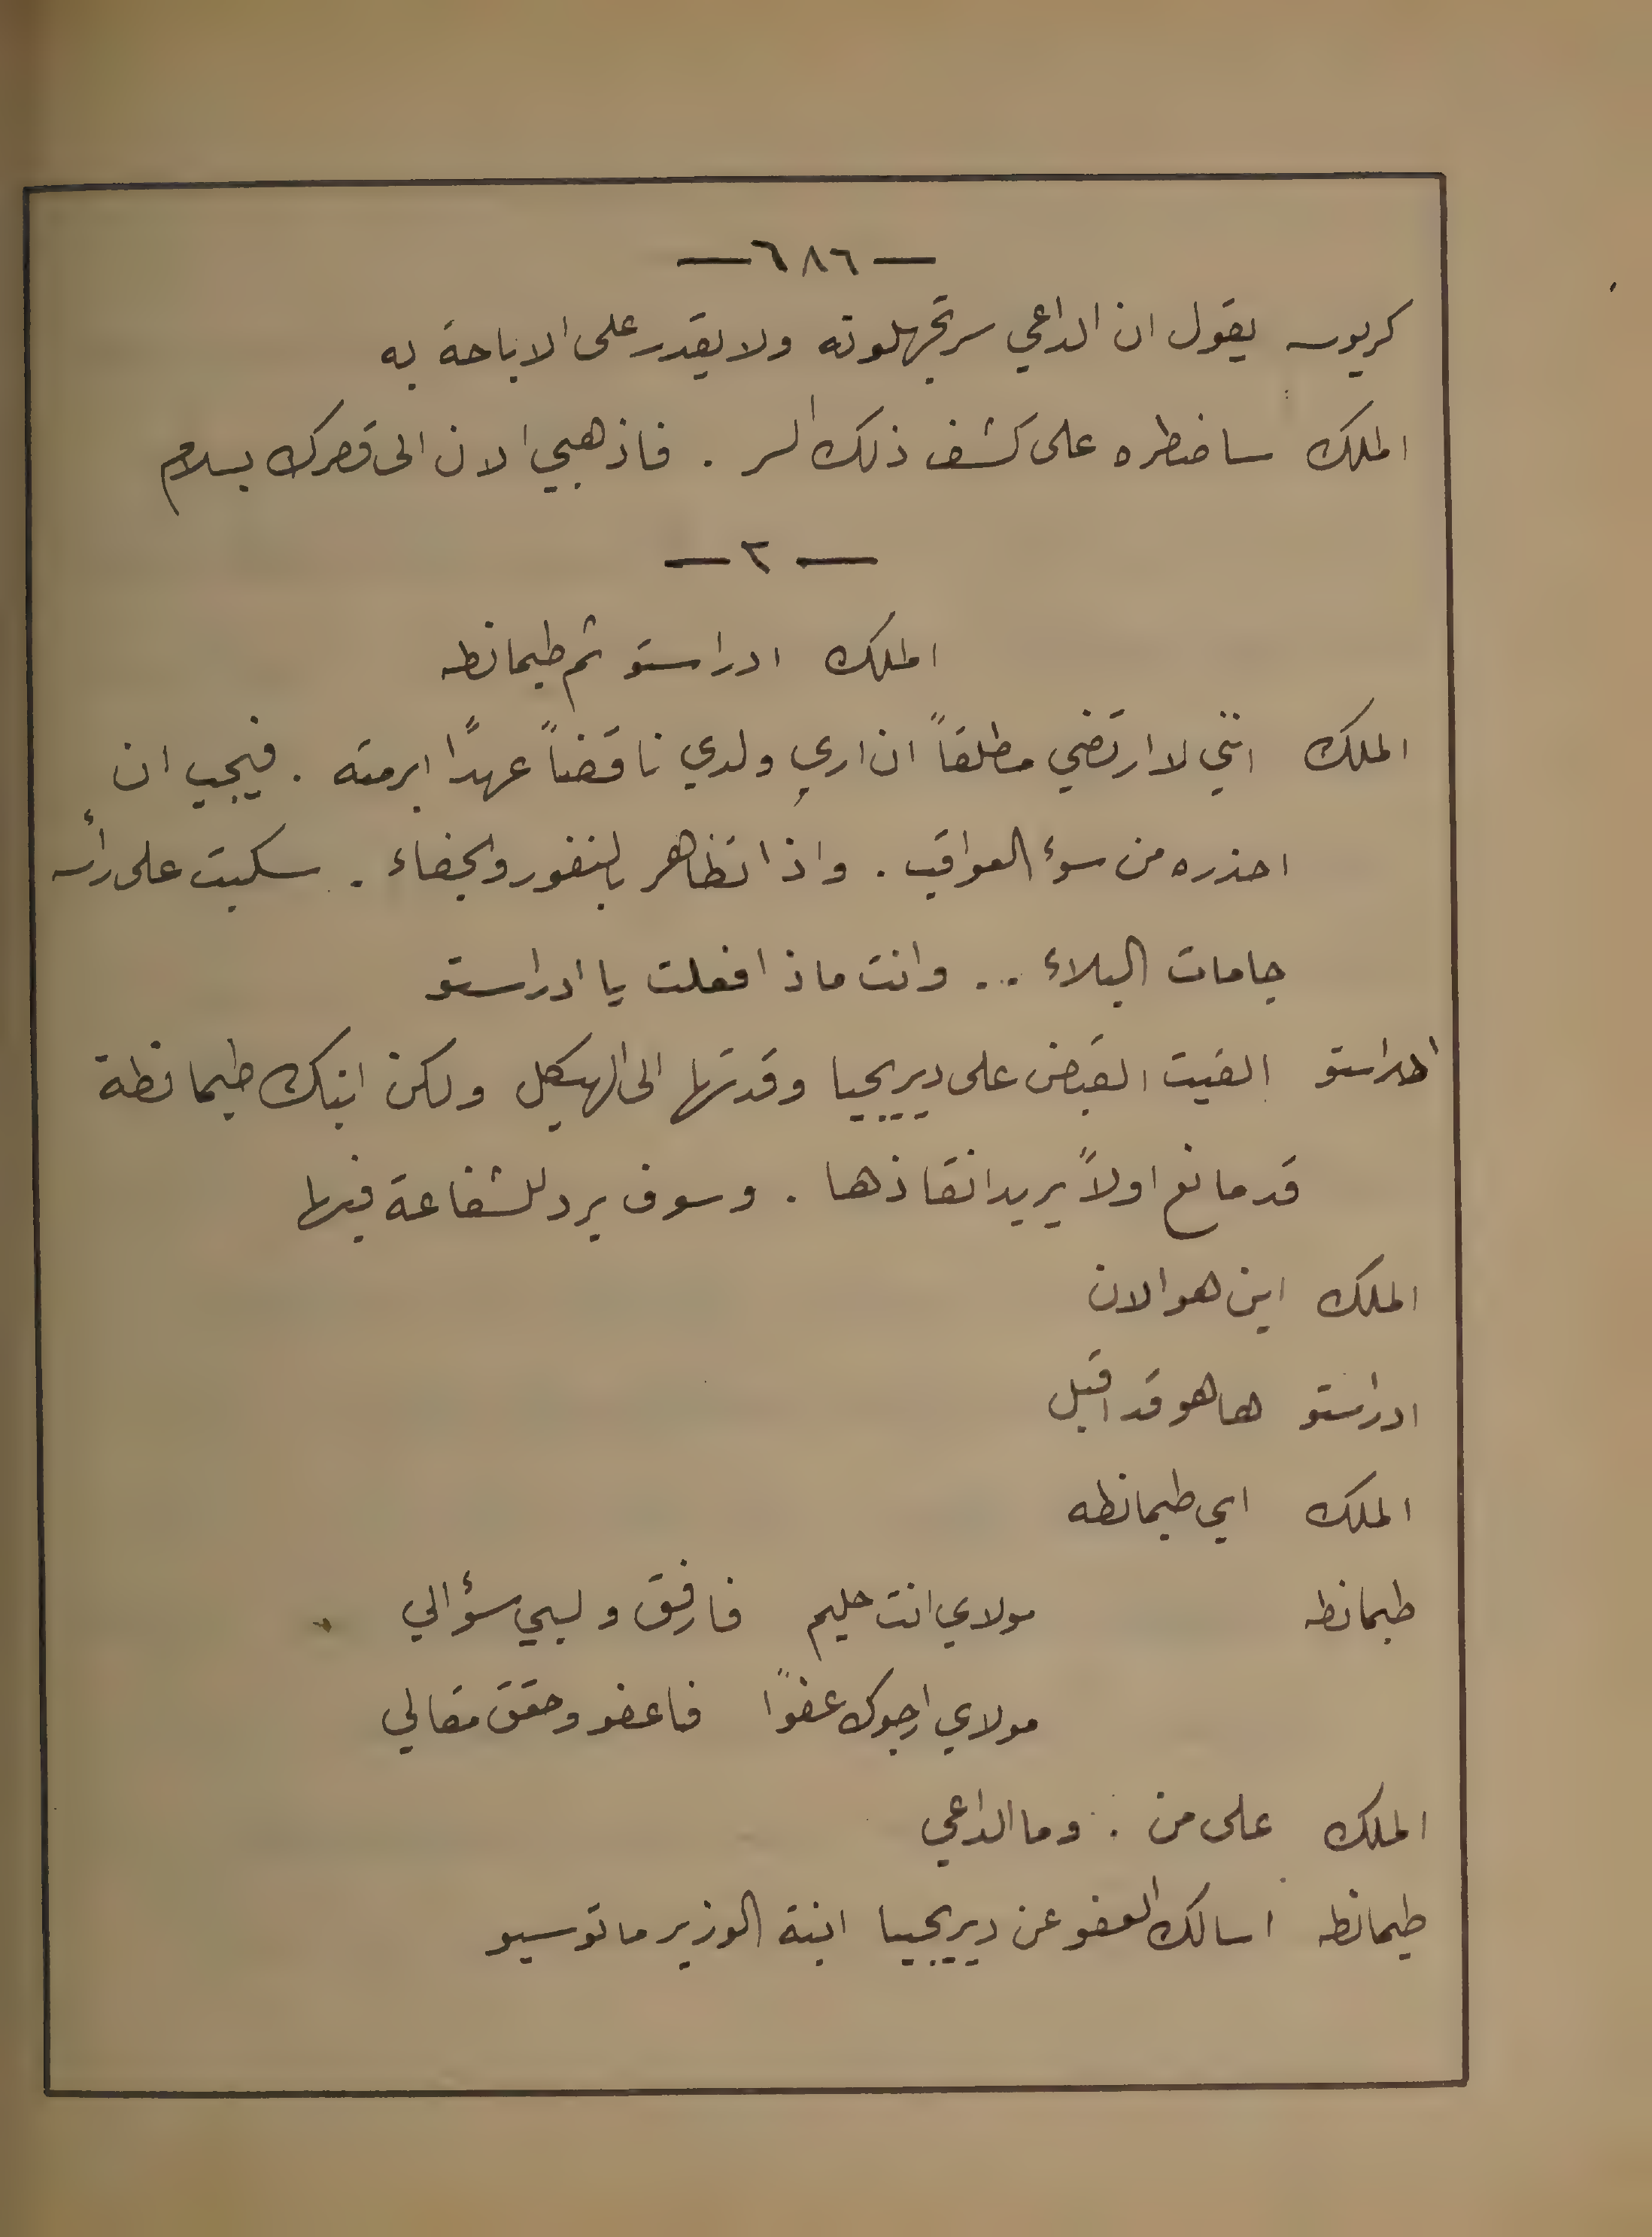 — ٦٨٦ —
كريوس يقول ان الداعي سر تجهلونه ولا يقدر على الاباحة به
الملك ساضطره على كشف ذلك السر . فاذهبي الان الى قصرك بسلام
— ٢ —
الملك ادراستو ثم طيمانطه
الملك انني لا ارتضي مطلقاً ان اري ولدي ناقضاً عهدًا ابرمته . فيجب ان
احذره من سوء العواقب . واذا تظاهر بالنفور والجفاء . سكبت على رأسه
جامات البلاء .. وانت ماذا فعلت يا ادراستو
ادراستو القيت القبض على ديريجيا وقدتها الى الهيكل ولكن ابنك طيمانطة
قد مانع اولاً يريد انقاذها . وسوف يرد للشفاعة فيها
الملك اين هو الان
ادراستو ها هو قد اقبل
الملك اي طيمانطه
طيمانطه مولاي انت حليم فارفق ولبي سؤالي
مولاي ارجوك عفوًا فاعفو وحقق مقالي
الملك على من . وما الداعي
طيمانطه اسالك العفو عن ديريجيا ابنة الوزير ماتوسيو